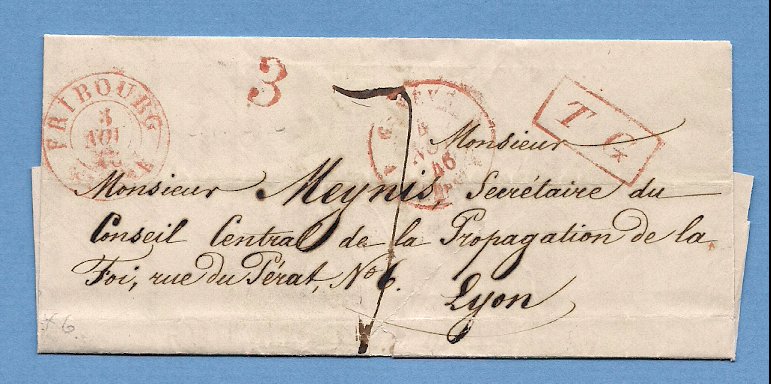 3
FRIBOURG
5
T G
GENÈVE
46
Monsieur
Monsieur Meynis Secrétaire du
Conseil Central de la Propagation de la
Foi, rue du Pérat, No 6.
Lyon